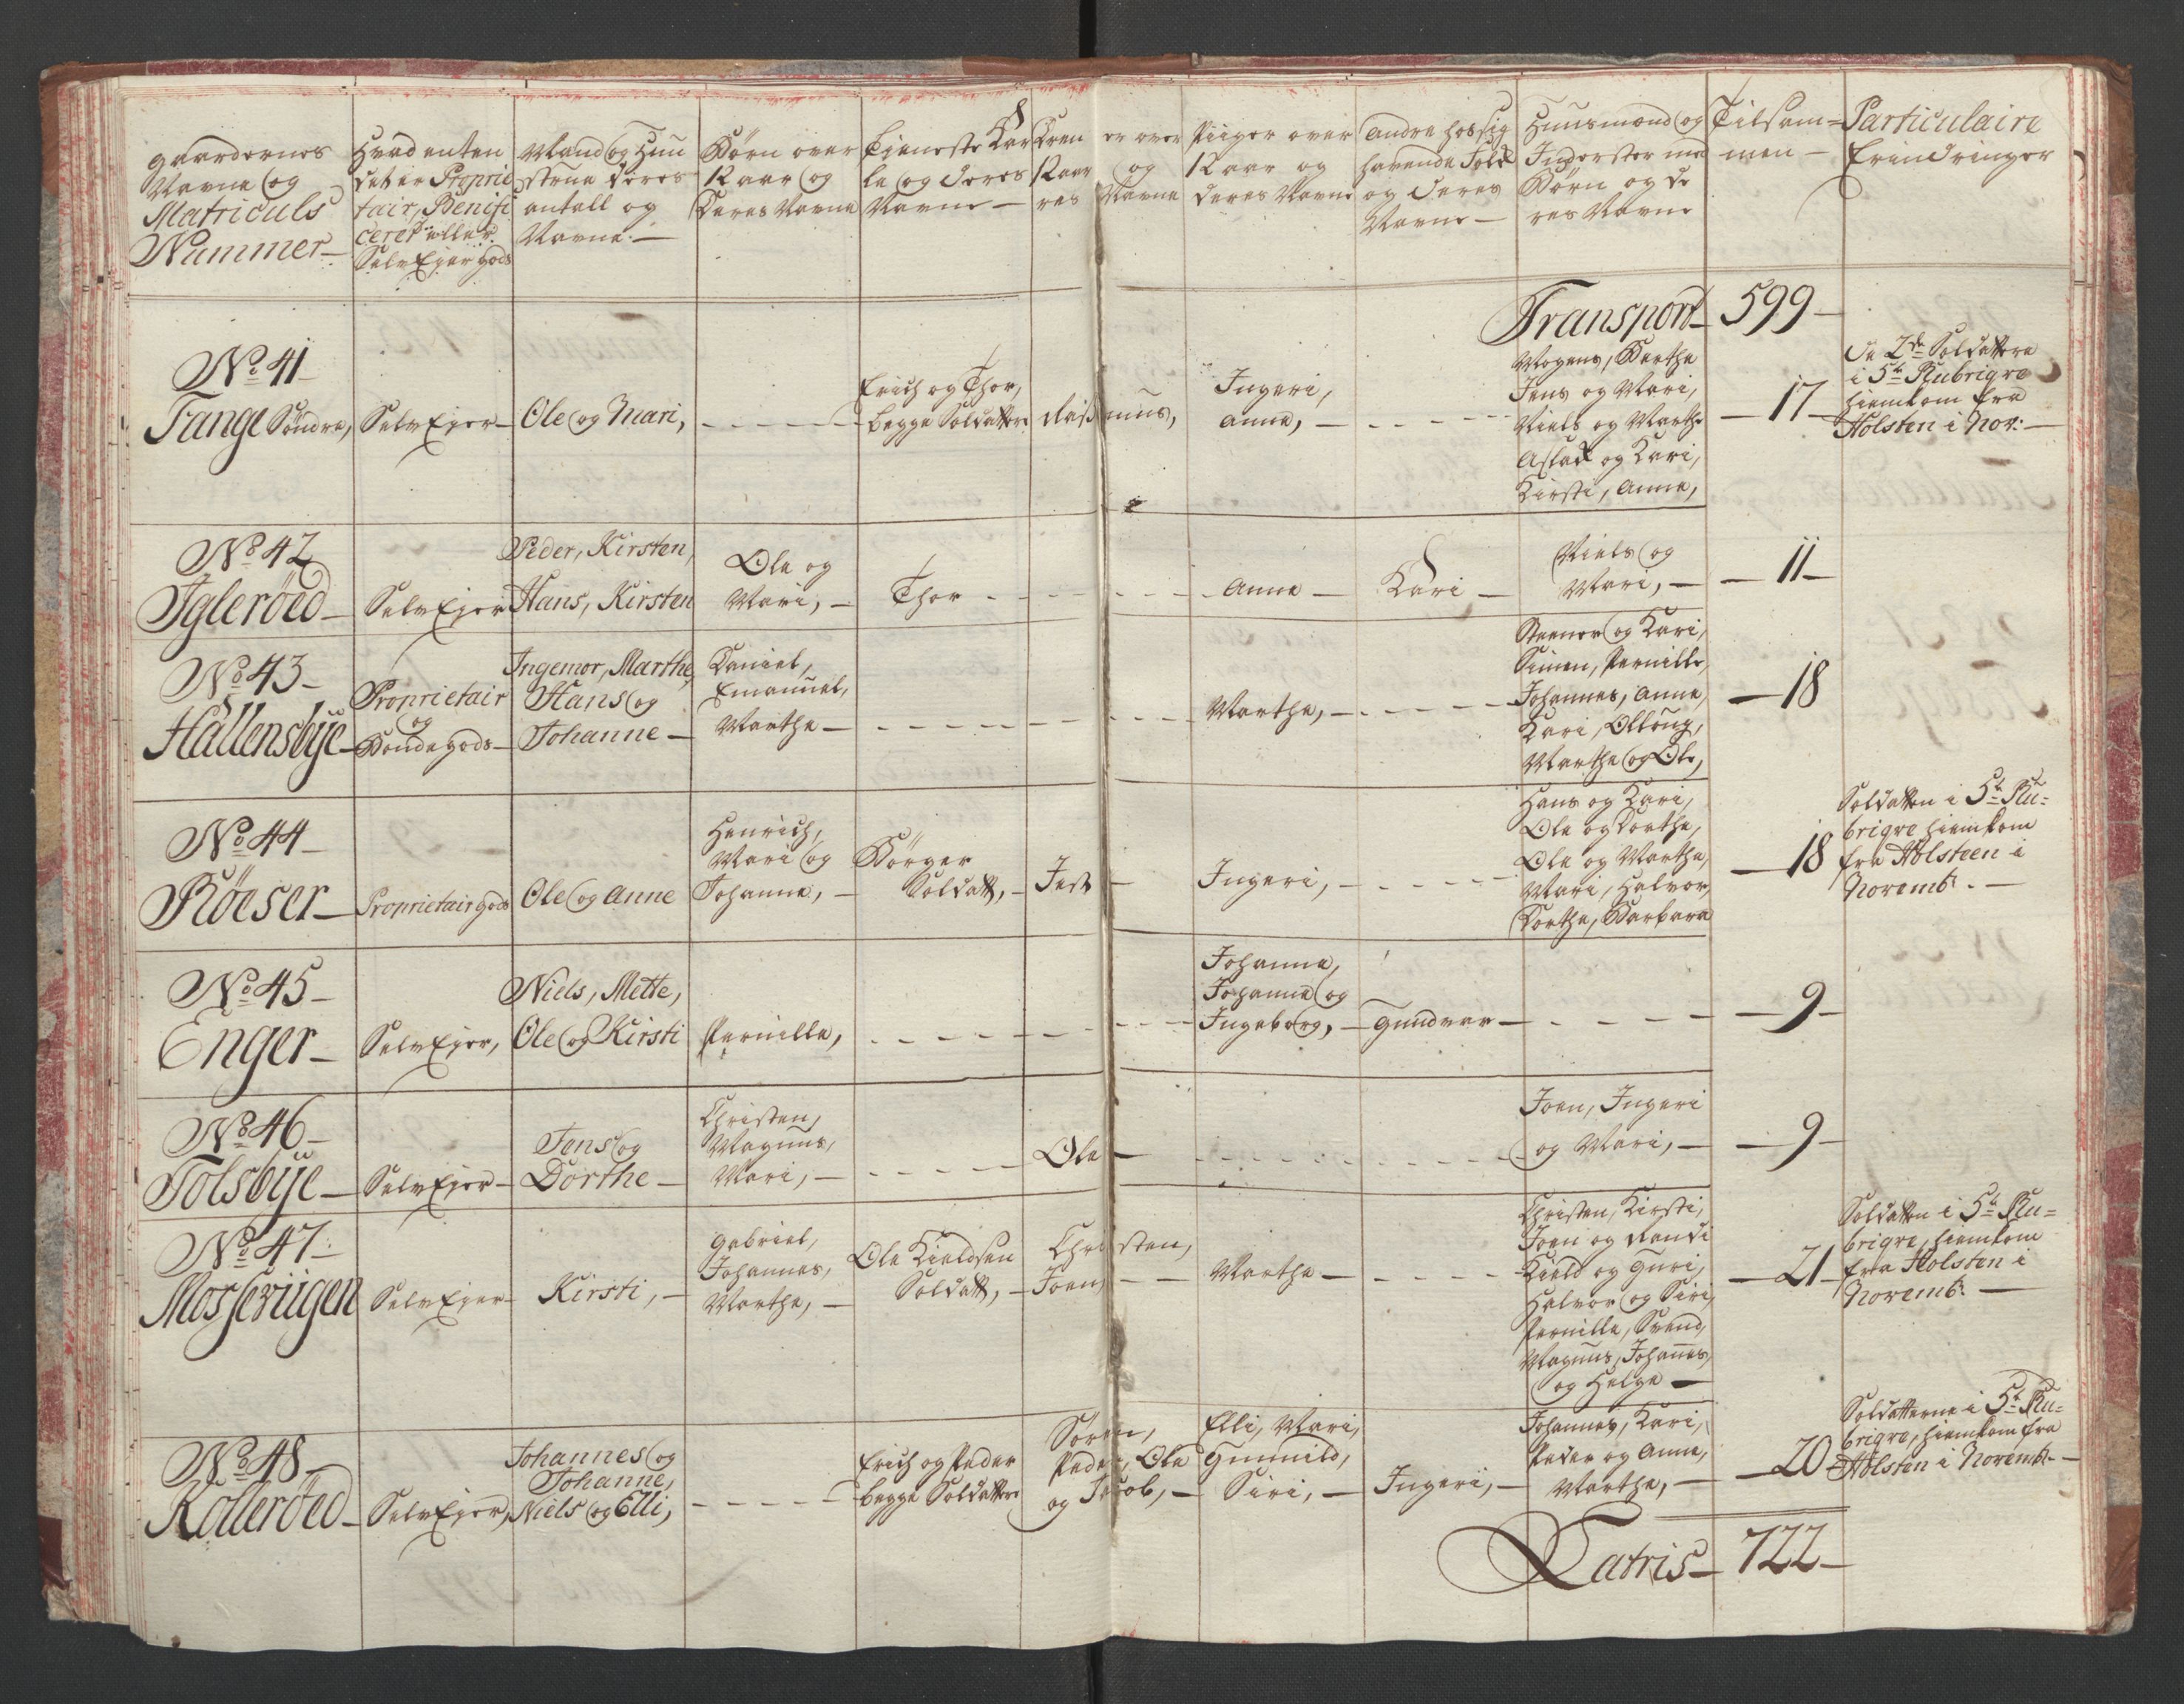 gaardernes
Navne og
Matriculs
Nummer
Hvad enten
det er Proprie
tair, Benifi
ceret eller
Selv Ejer gods
Mand og Huu
strue deres
antall og
Navne.
Børn over
12 aar og
deres Navne
Tieneste Kar
le og deres
Navne
Dren er over
12 aar og
res Navne
Piiger over
12 aar og
deres Navne
Andre hos sig
havende Folk
og deres
Navne
Huusmænd og
Inderster med
Børn og de
res Navne
Tilsam=
men
Particulaire
Erindringer
Transport 599
No 41
Tange Søndre,
Selv Ejer
Ole og Mari,
Erich og Thor,
begge Soldatter
Rasmus,
Ingeri,
Anne,
Mogens, Berthe
Jens og Mari,
Niels og Marthe
Aslak og Kari,
Kirsti, Anne,
17
de 2de Soldattere
i 5te Rubriqve
hiemkom fra
Holsten i Nov:
No 42
Iglerøed
Selv Ejer
Peder, Kirsten,
Hans, Kirsten
Ole og
Mari,
Thor
Anne
Kari
Niels og
Mari,
11
No 43
Hallensbÿe
Proprietair
og
Bondegods
Ingemor, Marthe,
Hans og
Johanne
Daniel,
Emanuel,
Marthe
Marthe,
Steener og Kari,
Simen, Pernille,
Johannes, Anne,
Kari, Olloug,
Marthe og Ole,
18
No 44
Röeser
Proprietair gods
Ole og Anne
Henrich,
Mari og
Johanne,
Börger
Soldatt,
Ingeri,
Hans og Kari,
Ole og Dorthe,
Ole og Marthe,
Mari, Halvor,
Dorthe, Barbara
18
Soldatten i 5te Ru=
briqve hiemkom
fra Holsteen i
Novemb:
No 45
Enger
Selv Ejer,
Niels, Mette,
Ole og Kirsti
Pernille,
Johanne,
Johanne og
Ingeborg,
Gundvar
9
No 46
Tolsbÿe
Selv Ejer
Jens og
Dorthe
Christen,
Magnus,
Mari,
Ole
Joen, Ingeri
og Mari,
9
No 47
Mosseviigen
Selv Ejer
Kirsti,
Gabriel,
Johannes,
Marthe,
Ole Kieldsen
Soldatt,
Christen,
Joen,
Marthe
Christen, Kirsti,
Joen og Randi
Kield og Guri,
Halvor og Siri,
Pernille, Svend,
Magnus, Johannes,
og Helge
21
Soldatten i 5te Ru=
briqve, hiemkom
fra Holsten i
Novemb:
No 48
Kollerøed
Selv Ejer,
Johannes og
Johanne,
Niels og Elli,
Erich og Peder
begge Soldatter
Sören,
Peder, Ole
og Jacob,
Elli, Mari,
Gunnild,
Siri,
Ingeri,
Johannes, Kari,
Peder og Anne,
Marthe,
20
Soldatterne i 5te Ru=
briqve, hiemkom fra
Holsten i Novemb.
Latris 722